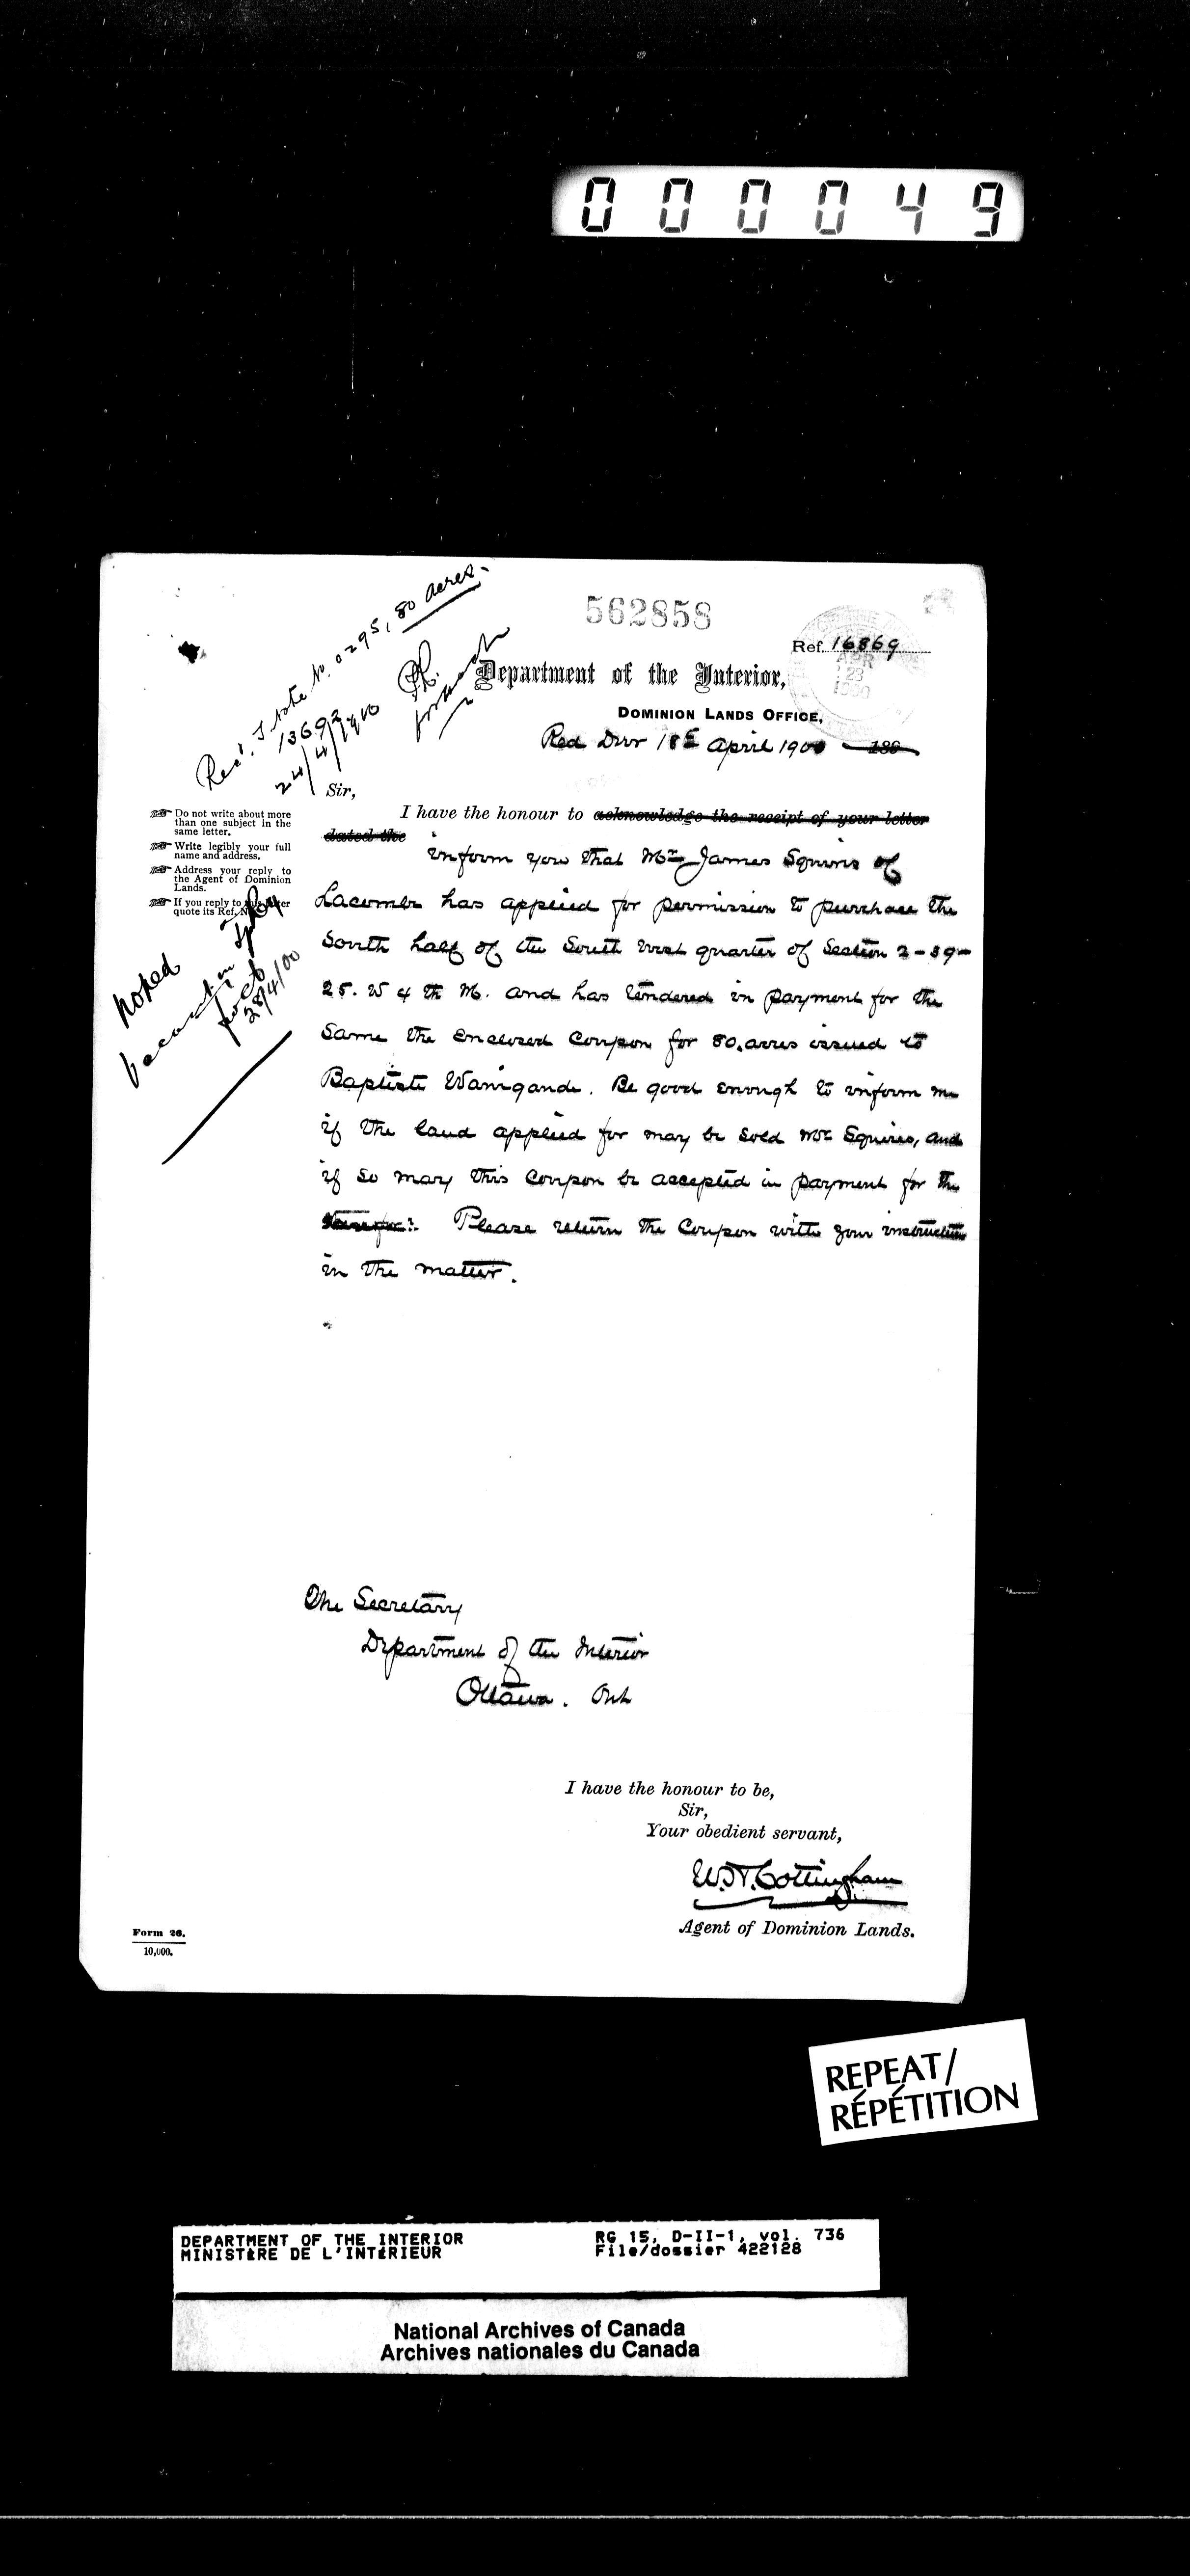 000049
Rec'd. I note No. 0295, 80 acres.
13692
24/4/1900
562858
Ref. 16869
APR
23
1900
Department of the Interior,
DOMINION LANDS OFFICE,
Red Deer 18th April 1900 189
Sir,
I have the honour to acknowledge the receipt of your letter
dated the
inform you that Mr James Squires of
Lacombe has applied for permission to purchase the
South half of the South West quarter of Section 2-39-
25. W 4th M. and has tendered in payment for the
same the enclosed Coupon for 80.acres issued to
Baptiste Wanigande. Be good enough to inform me
if the land applied for may be sold Mr Squires, and
if so may this Coupon be accepted in payment for the
Please return the Coupon with your instructions
in the matter.
Do not write about more
than one subject in the
same letter.
Write legibly your full
name and address.
Address your reply to
the Agent of Dominion
Lands.
If you reply to this letter
quote its Ref. No.
Noted
28/4/00
The Secretary
Department of the Interior
Ottawa. Ont
I have the honour to be,
Sir,
Your obedient servant,
W.H.Cottingham
Agent of Dominion Lands.
Form 26.
10,000.
REPEAT/
RÉPÉTITION
DEPARTMENT OF THE INTERIOR RG 15, D-II-1, vol. 736
MINISTÈRE DE L'INTÉRIEUR File/dossier 422128
National Archives of Canada
Archives nationales du Canada